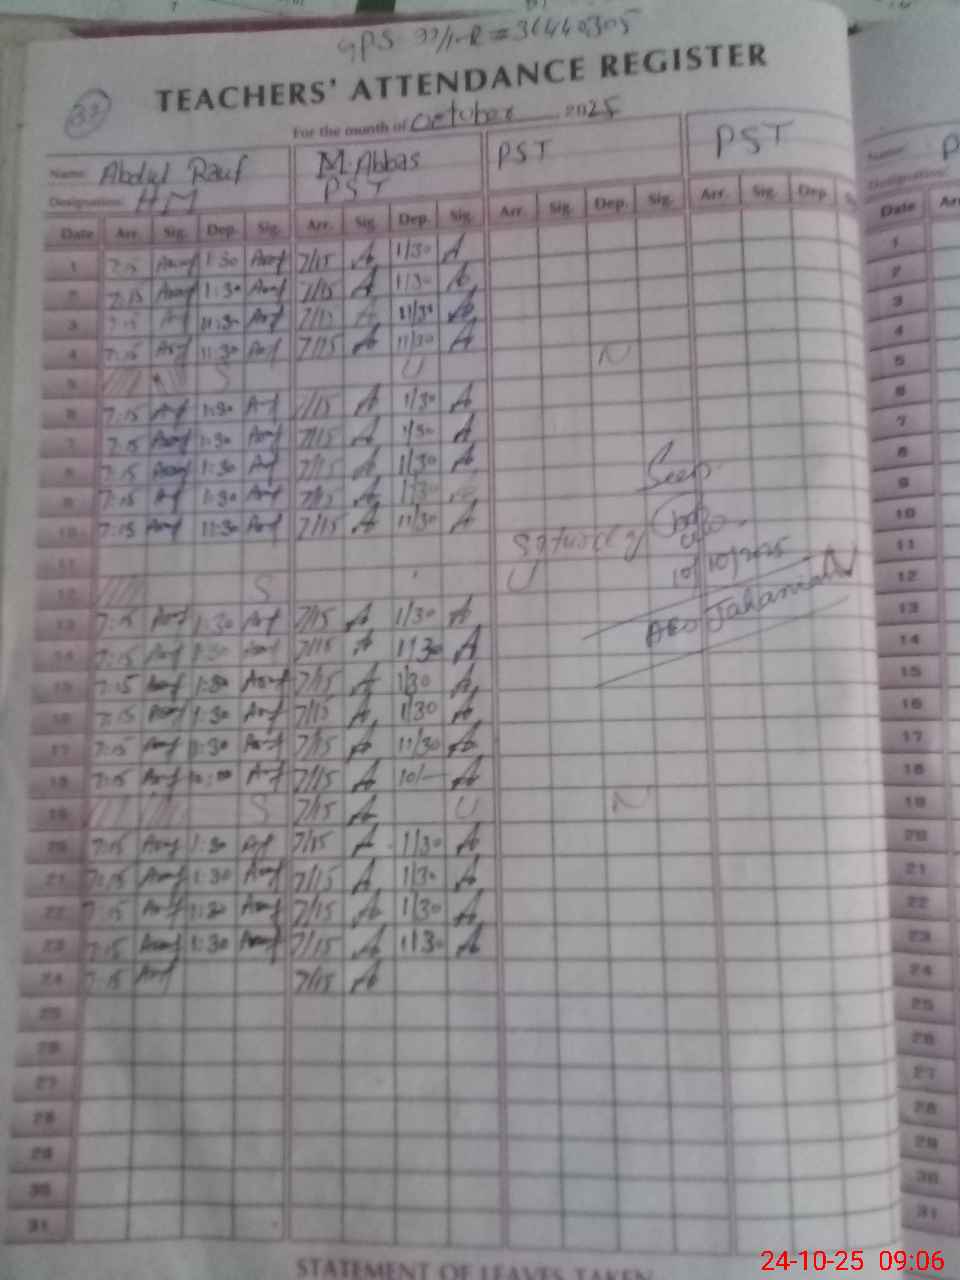 GPS 99/1-R = 36440305
TEACHERS' ATTENDANCE REGISTER
33
For the month of October 2025
Name Abdul Rauf M. Abbas PST PST
Designation HM PST
Date Arr. Sig. Dep. Sig. Arr. Sig. Dep. Sig. Arr. Sig. Dep. Sig. Arr. Sig. Dep.
1 7:15 1:30 7/15 A 1/30 A
2 7:15 1:30 7/15 A 1/30 A
3 7:15 11:30 7/15 A 11/30 A
4 7:15 11:30 7/15 A 11/30 A
5 S U N
6 7:15 1:30 7/15 A 1/30 A
7 7:15 1:30 7/15 A 1/30 A
8 7:15 1:30 7/15 A 1/30 A
9 7:15 1:30 7/15 A 1/30
10 7:15 11:30 7/15 A 11/30 A
11
12 S U
Seen
10/10/2025
AEO Jahanian
13 7:15 1:30 7/15 A 1/30 A
14 7:15 1:30 7/15 A 1:30 A
15 7:15 1:30 7/15 A 1/30 A
16 7:15 1:30 7/15 A 1/30 A
17 7:15 11:30 7/15 A 11/30 A
18 7:15 10:00 7/15 A 10/— A
19 S 7/15 A U N
20 7:15 1:30 7/15 A 1/30 A
21 7:15 1:30 7/15 A 1/30 A
22 7:15 1:30 7/15 A 1/30 A
23 7:15 1:30 7/15 A 1/30 A
24 7:15 7/15 A
25
26
27
28
29
30
31
STATEMENT OF LEAVES TAKEN
Name P
Designation
Date Arr
1
2
3
4
5
6
7
8
9
10
11
12
13
14
15
16
17
18
19
20
21
22
23
24
25
26
27
28
29
30
31
24-10-25 09:06